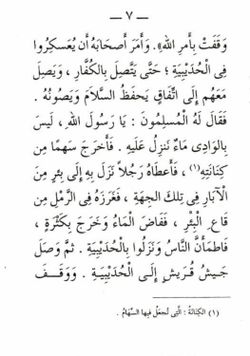 — ٧ —
وَقَفَتْ بِأَمْرِ اللهِ». وَأَمَرَ أَصْحَابَهُ أَن يُعَسْكِرُوا
فِي الْحُدَيْبِيَةِ ؛ حَتَّى يَتَّصِلَ بِالْكُفَّارِ ، وَيَصِلَ
مَعَهُم إِلَى اتِّفَاقٍ يَحفَظُ السَّلَامَ وَيَصُونُهُ .
فَقَالَ لَهُ الْمُسلِمُونَ : يَا رَسُولَ اللهِ ، لَيسَ
بِالْوَادِى مَاءٌ نَنزِلُ عَلَيهِ . فَأَخرَجَ سَهمًا مِن
كِنَانَتِهِ(١) ، فَأَعطَاهُ رَجُلاً نَزَلَ بِهِ إِلَى بِئرٍ مِنَ
الْآبَارِ فِى تِلكَ الْجِهَةِ ، فَغَرَزَهُ فِى الرَّملِ مِن
قَاعِ الْبِئرِ ، فَفَاضَ الْمَاءُ وَخَرَجَ بِكَثْرَةٍ ،
فَاطمَأَنَّ النَّاسُ وَنَزَلُوا بِالْحُدَيْبِيَةِ . ثمَّ وَصَلَ
جَيشُ قُرَيشٍ إِلَى الْحُدَيْبِيَةِ . وَوَقَفَ
(١) الكِنانَةُ : الَّتِى تُجعَلُ فِيهَا السِّهَامُ .